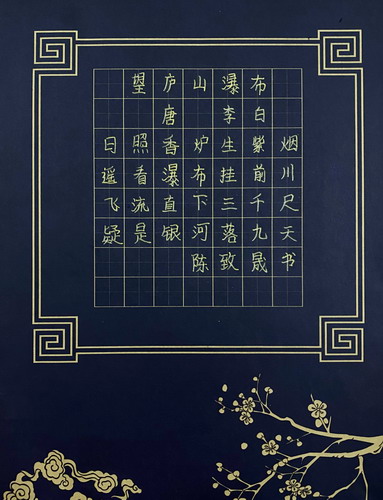 望庐山瀑布
唐 李白
日照香炉生紫烟
遥看瀑布挂前川
飞流直下三千尺
疑是银河落九天
陈致晟书